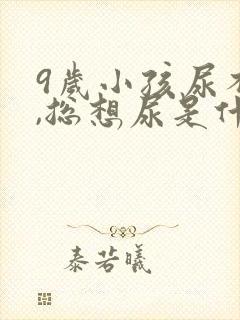 9岁小孩尿
,总想尿是什
秦若曦